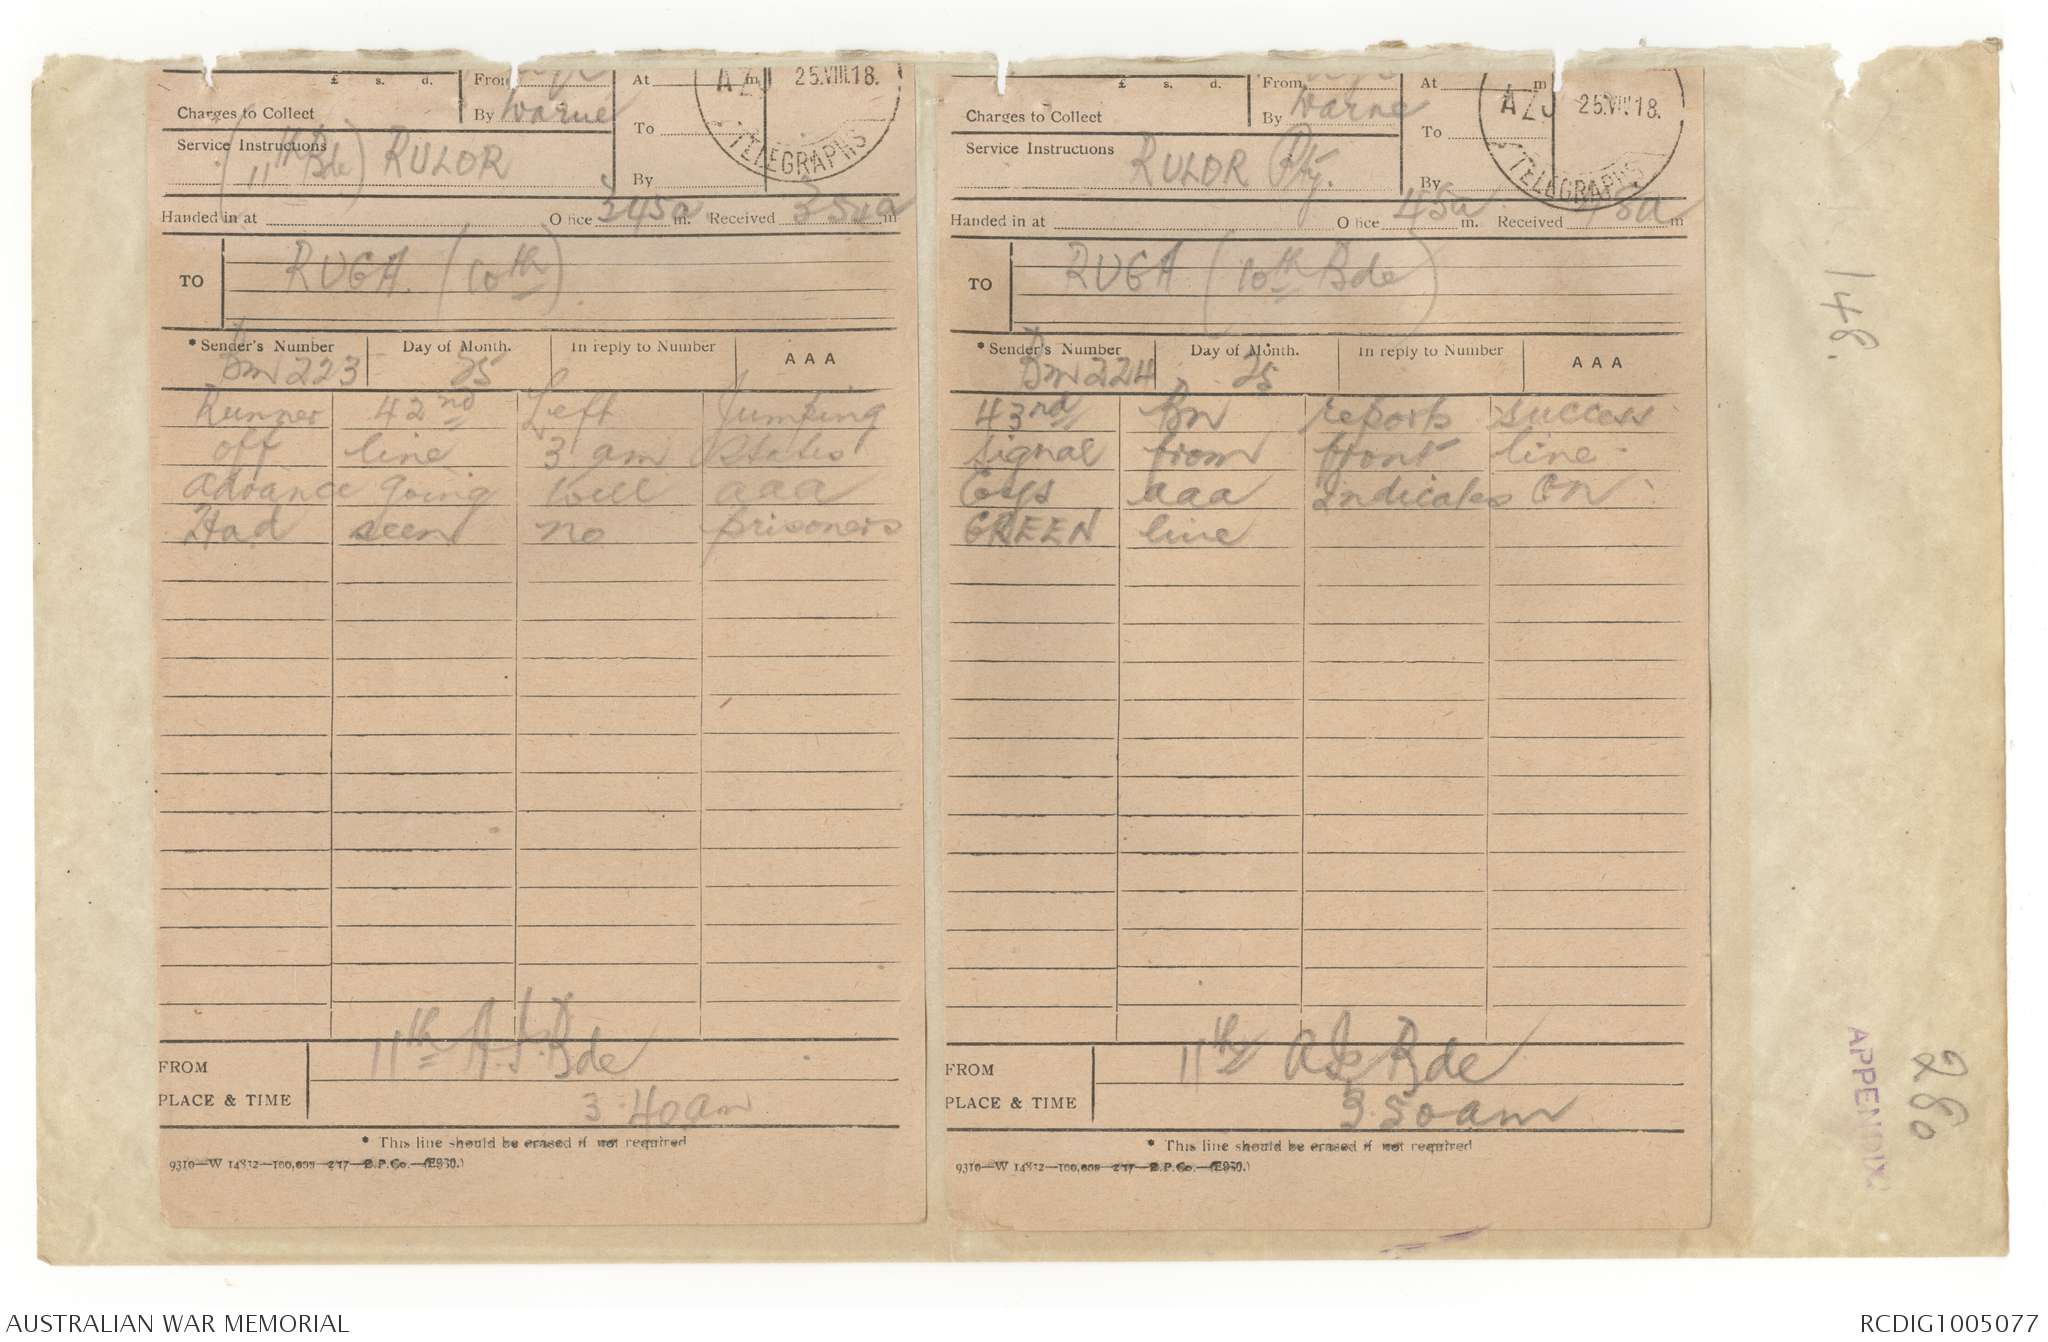 £ s. d.
Charges to Collect
From
By Warne
At m
To
By
AZJ 25.VIII.18.
TELEGRAPHS
Service Instructions
(11th Bde) RULOR
Handed in at Office 345a m. Received m
TO RUGA (10th)
* Sender's Number Day of Month. In reply to Number AAA
Bm 223 25
Runner 42nd Left Jumping
off line 3 am States
advance going well aaa
Had seen no prisoners
FROM 11th A.I.Bde
PLACE & TIME 3.40am
* This line should be erased if not required
9310—W 14812—100,000—2/17—D.P.Co.—(E930.)
£ s. d.
Charges to Collect
From
By Warne
At m
To
By
AZJ 25.VIII.18.
TELEGRAPHS
Service Instructions
RULOR Pty.
Handed in at Office 45a m. Received m
TO RUGA (10th Bde)
* Sender's Number Day of Month. In reply to Number AAA
Bm 224 25
43rd Bn reports success
signal from front line
Coys aaa indicates ON
GREEN line
FROM 11th A I Bde
PLACE & TIME 3.50am
* This line should be erased if not required
9310—W 14812—100,000—2/17—D.P.Co.—(E930.)
148.
APPENDIX
280
AUSTRALIAN WAR MEMORIAL
RCDIG1005077